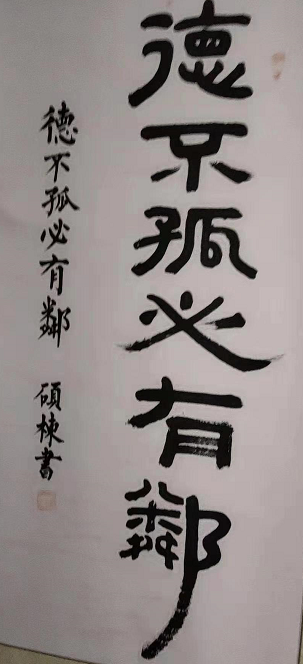 德不孤必有鄰
德不孤必有鄰 碩棟書